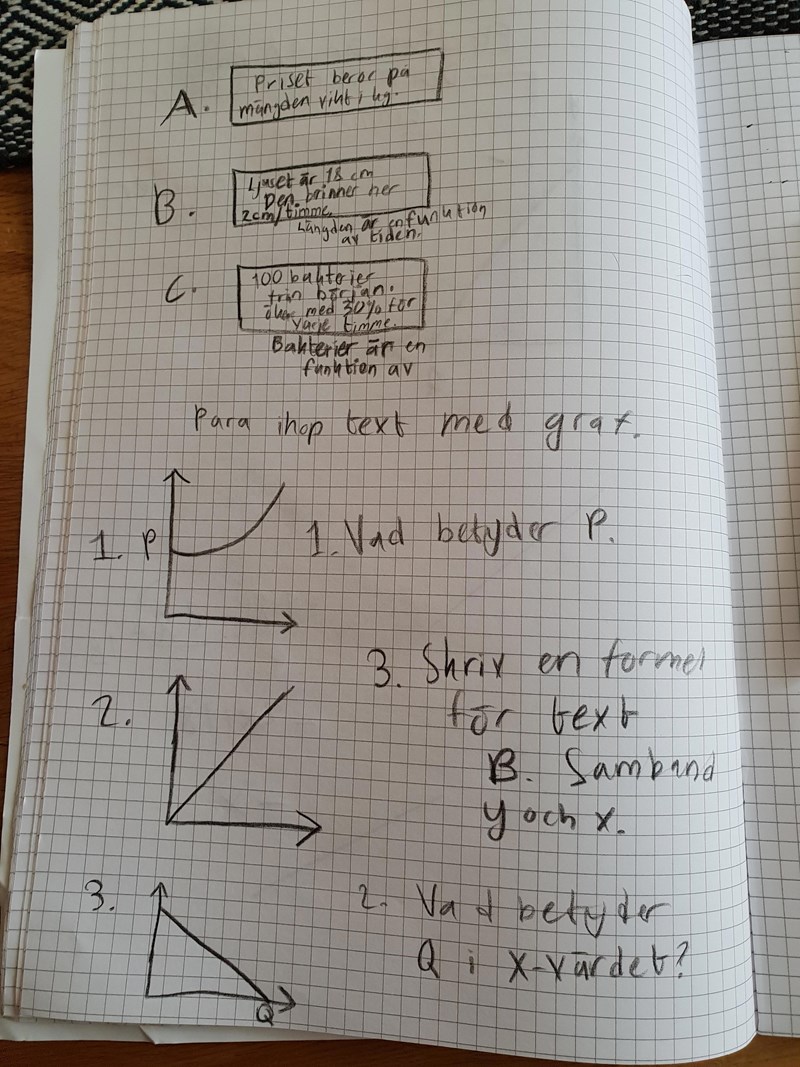 A. Priset beror på
mängden vikt i kg.
B. Ljuset är 18 cm
Den brinner ner
2cm/timme.
Längden är en funktion
av tiden.
C. 100 bakterier
från början.
ökar med 30% för
varje timme.
Bakterier är en
funktion av
Para ihop text med graf.
1. P
1. Vad betyder P.
3. Skriv en formel
för text
B. Samband
y och x.
2.
3.
Q
2. Vad betyder
Q i x-värdet?